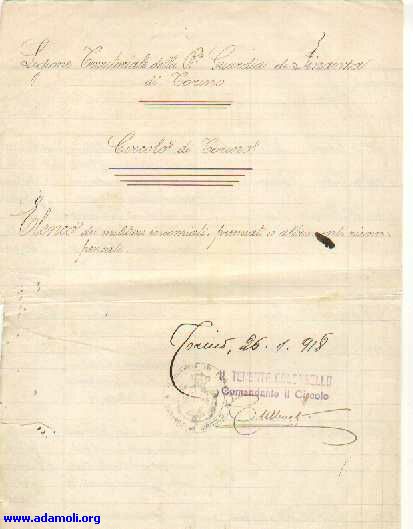 Legione Territoriale della Rª Guardia di Finanza
di Torino
Circolo di Torino
Elenco dei militari encomiati, premiati o altrimenti ricom-
pensati.
Torino, 26. 1. 918
IL TENENTE COLONNELLO
Comandante il Circolo
www.adamoli.org